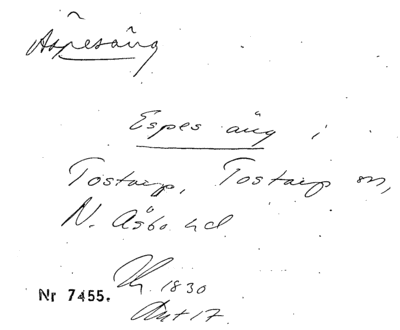 Äspesäng
Espes äng i
Tostarp, Tostarp sn,
N. Åsbo hd
1830
Akt 17
Nr 7455.